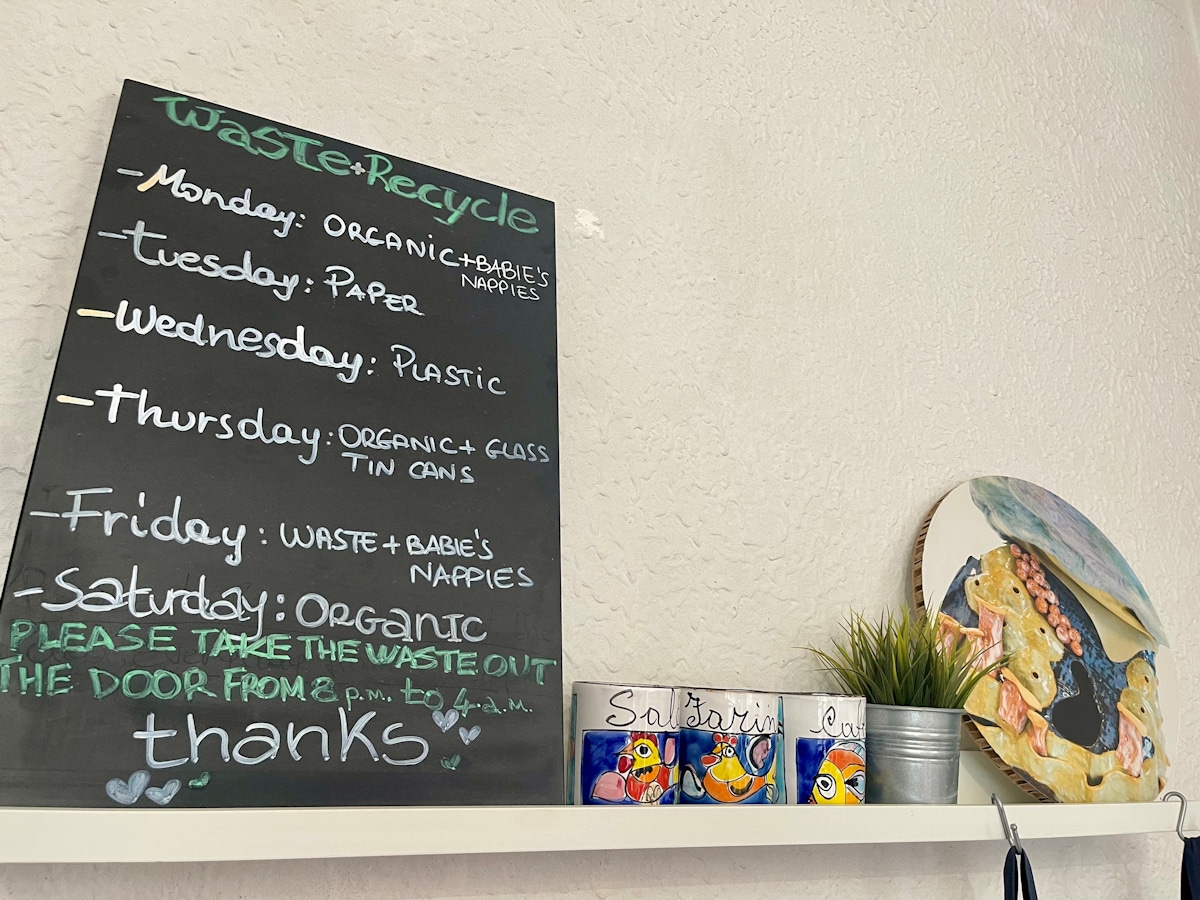 Waste+Recycle
-Monday: ORGANIC+BABIE'S
NAPPIES
-Tuesday: PAPER
-Wednesday: PLASTIC
-Thursday: ORGANIC+ GLASS
TIN CANS
-Friday: WASTE+BABIE'S
NAPPIES
-Saturday: ORGANIC
PLEASE TAKE THE WASTE OUT
THE DOOR FROM 8 p.m. to 4 a.m.
thanks
Sal
Farin